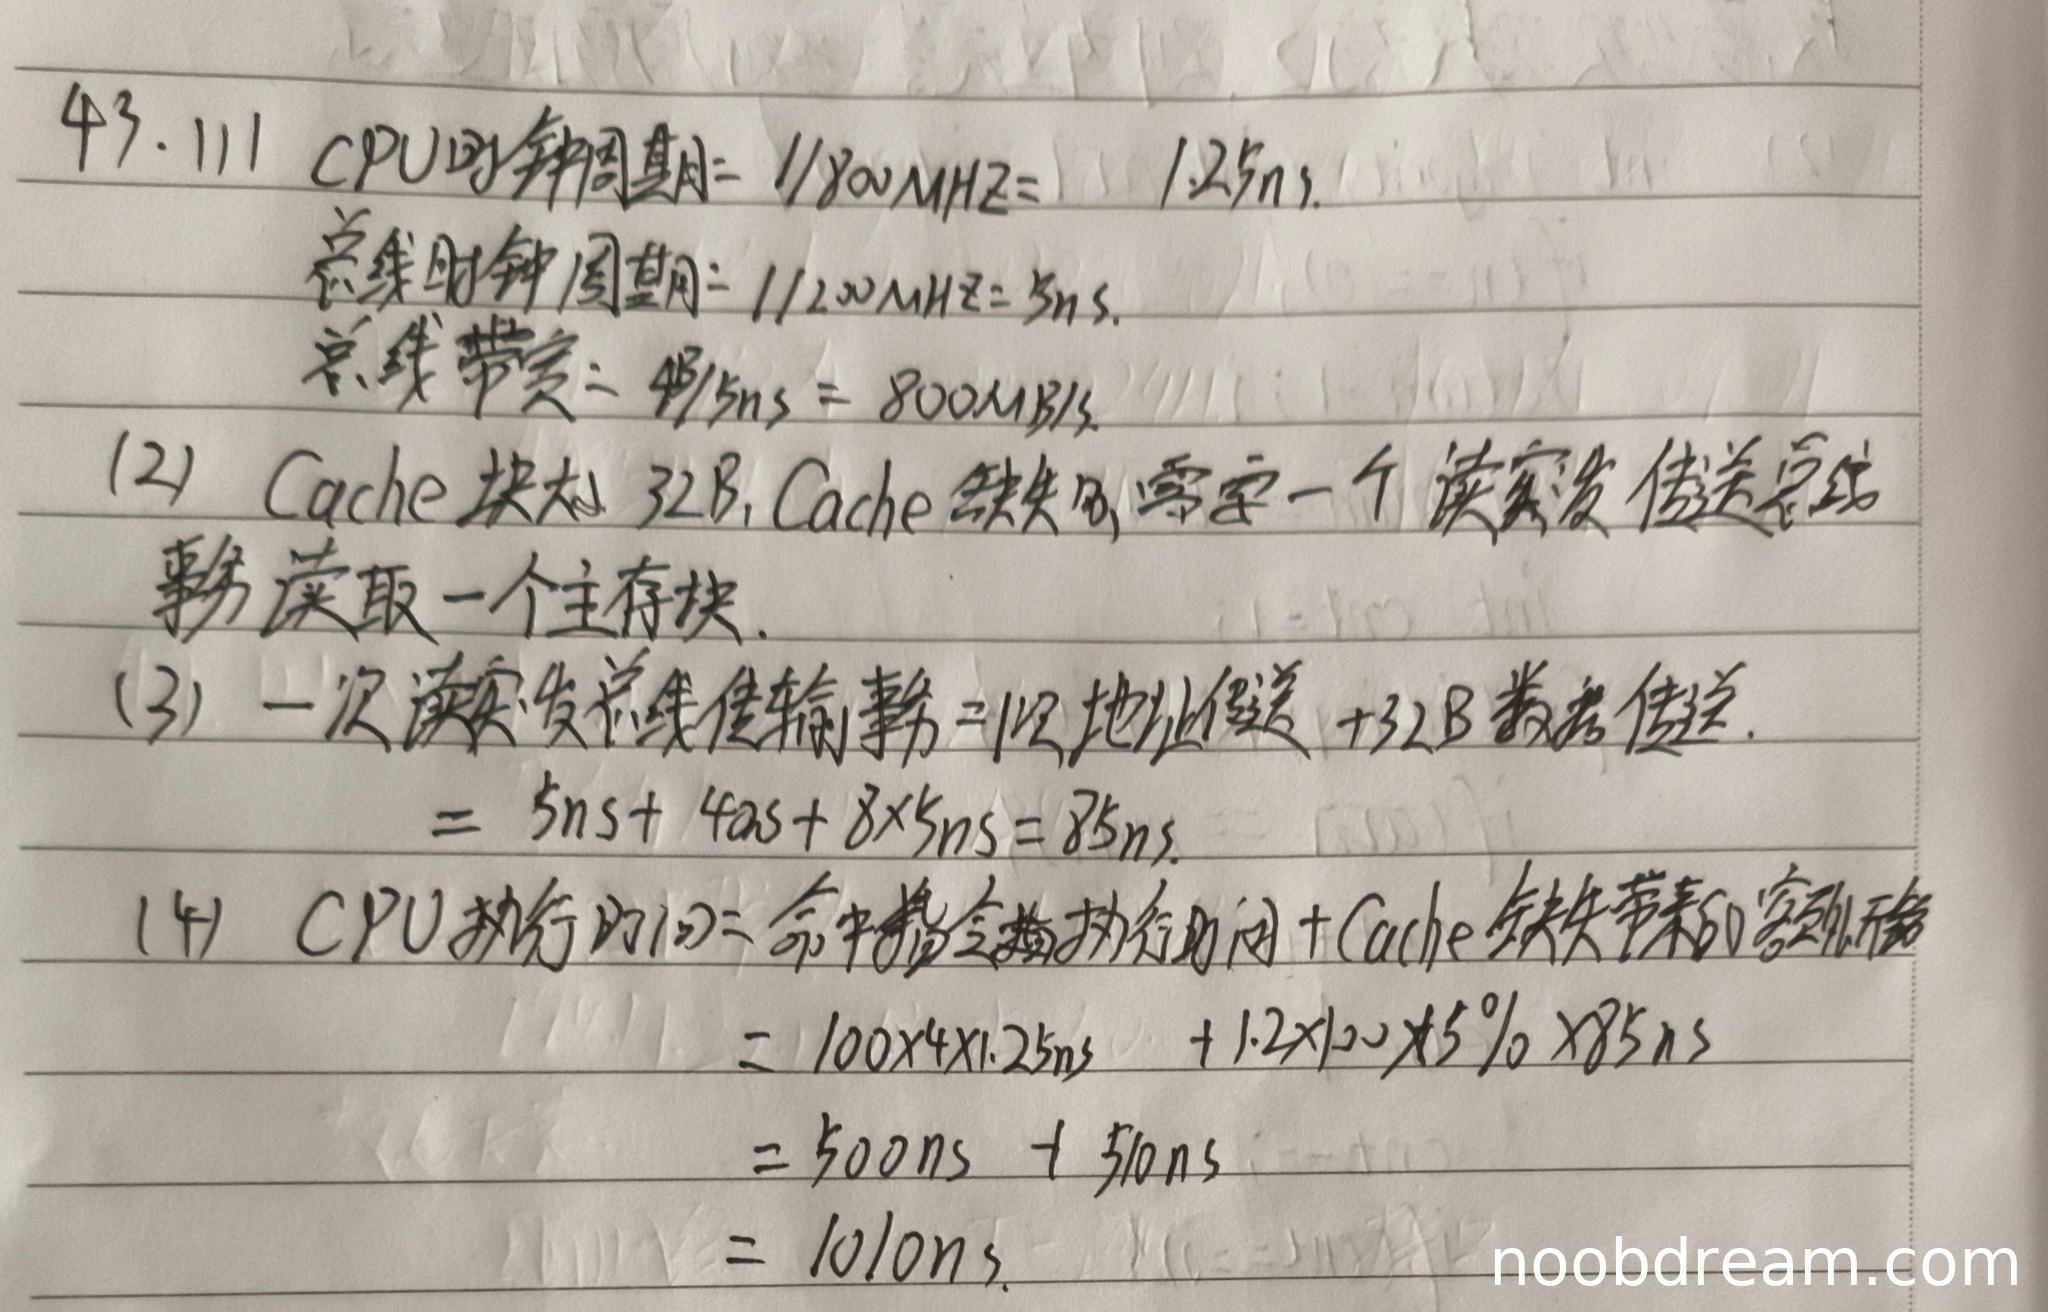 43.(1) CPU时钟周期= 1/800MHZ= 1.25ns.
总线时钟周期= 1/200MHZ=5ns.
总线带宽= 4B/5ns = 800MB/s.
(2) Cache块大小 32B, Cache缺失时,需要一个读突发传送总线
事务读取一个主存块.
(3) 一次读突发总线传输事务=1次地址传送 +32B数据传送.
= 5ns+ 40ns+ 8×5ns=85ns.
(4) CPU执行时间=命中指令执行时间+Cache缺失带来的额外开销
= 100×4×1.25ns +1.2×100×5%×85ns
= 500ns + 510ns
= 1010ns.
noobdream.com